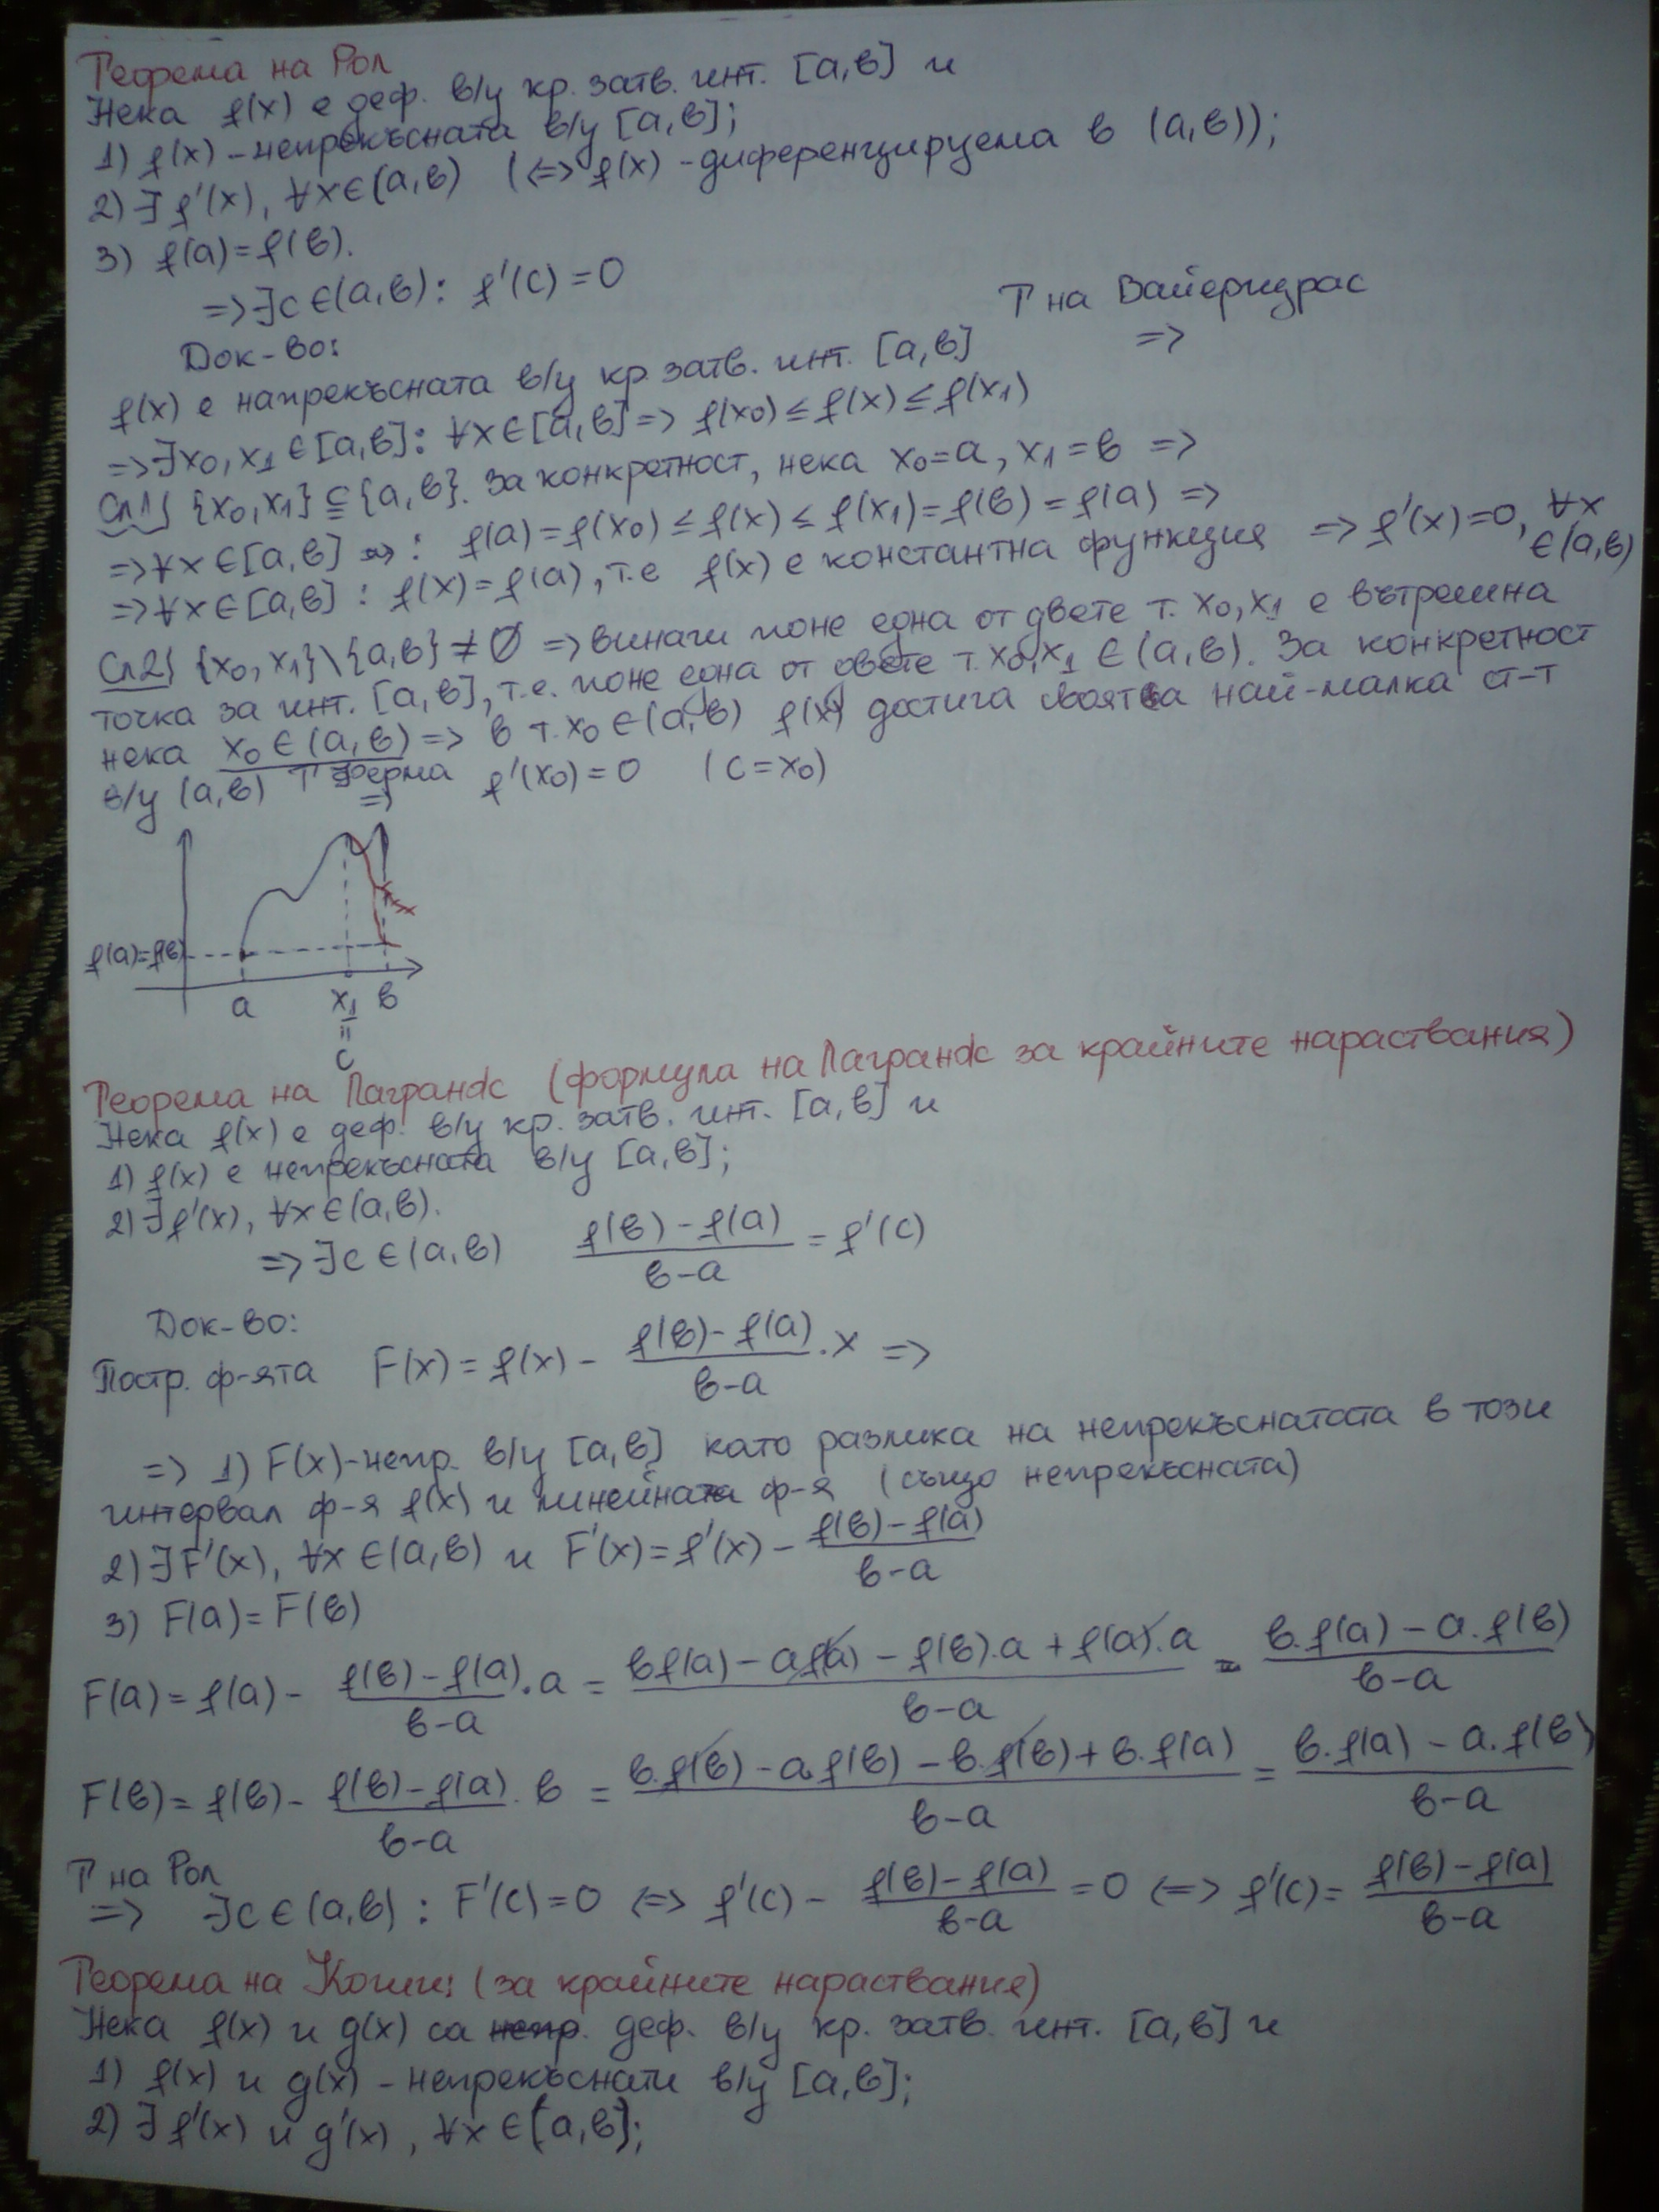 Теорема на Рол
Нека f(x) е деф. в/у кр. затв. инт. [a,b] и
1) f(x) - непрекъсната в/у [a,b];
2) ∃ f'(x), ∀x∈(a,b) (<=> f(x) - диференцируема в (a,b));
3) f(a)=f(b).
=> ∃c∈(a,b): f'(c)=0
Док-во:
f(x) е напрекъсната в/у кр. затв. инт. [a,b] Т на Вайерщрас =>
=> ∃x₀,x₁∈[a,b]: ∀x∈[a,b] => f(x₀)≤f(x)≤f(x₁)
Сл1) {x₀,x₁}⊆{a,b}. За конкретност, нека x₀=a, x₁=b =>
=> ∀x∈[a,b] : f(a)=f(x₀)≤f(x)≤f(x₁)=f(b)=f(a) =>
=> ∀x∈[a,b] : f(x)=f(a), т.е f(x) е константна функция => f'(x)=0, ∀x ∈(a,b)
Сл2) {x₀,x₁}\{a,b}≠∅ => винаги поне една от двете т. x₀,x₁ е вътрешна
точка за инт. [a,b], т.е. поне една от двете т. x₀,x₁ ∈(a,b). За конкретност
нека x₀∈(a,b) => в т. x₀∈(a,b) f(x) достига своята най-малка ст-т
в/у (a,b) Т Ферма => f'(x₀)=0 (c=x₀)
f(a)=f(b)
a x₁ b
=
c
Теорема на Лагранж (формула на Лагранж за крайните нараствания)
Нека f(x) е деф. в/у кр. затв. инт. [a,b] и
1) f(x) е непрекъсната в/у [a,b];
2) ∃f'(x), ∀x∈(a,b).
=> ∃c∈(a,b) (f(b)-f(a))/(b-a) = f'(c)
Док-во:
Постр. ф-ята F(x)=f(x) - (f(b)-f(a))/(b-a) . x =>
=> 1) F(x)-непр. в/у [a,b] като разлика на непрекъснатата в този
интервал ф-я f(x) и линейната ф-я (също непрекъсната)
2) ∃F'(x), ∀x∈(a,b) и F'(x)=f'(x) - (f(b)-f(a))/(b-a)
3) F(a)=F(b)
F(a)=f(a) - (f(b)-f(a))/(b-a) . a = (bf(a)-af(a)-f(b).a+f(a).a)/(b-a) = (b.f(a)-a.f(b))/(b-a)
F(b)=f(b) - (f(b)-f(a))/(b-a) . b = (b.f(b)-a.f(b)-b.f(b)+b.f(a))/(b-a) = (b.f(a)-a.f(b))/(b-a)
Т на Рол
=> ∃c∈(a,b) : F'(c)=0 <=> f'(c) - (f(b)-f(a))/(b-a) = 0 <=> f'(c) = (f(b)-f(a))/(b-a)
Теорема на Коши: (за крайните нараствания)
Нека f(x) и g(x) са непр. деф. в/у кр. затв. инт. [a,b] и
1) f(x) и g(x) - непрекъснати в/у [a,b];
2) ∃ f'(x) и g'(x), ∀x∈(a,b);